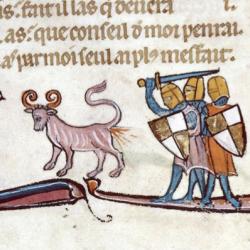 is. fait il las q̃ deuera
las. que conseil õ moi penrai
a. par moi seul ai plꝰ messait.